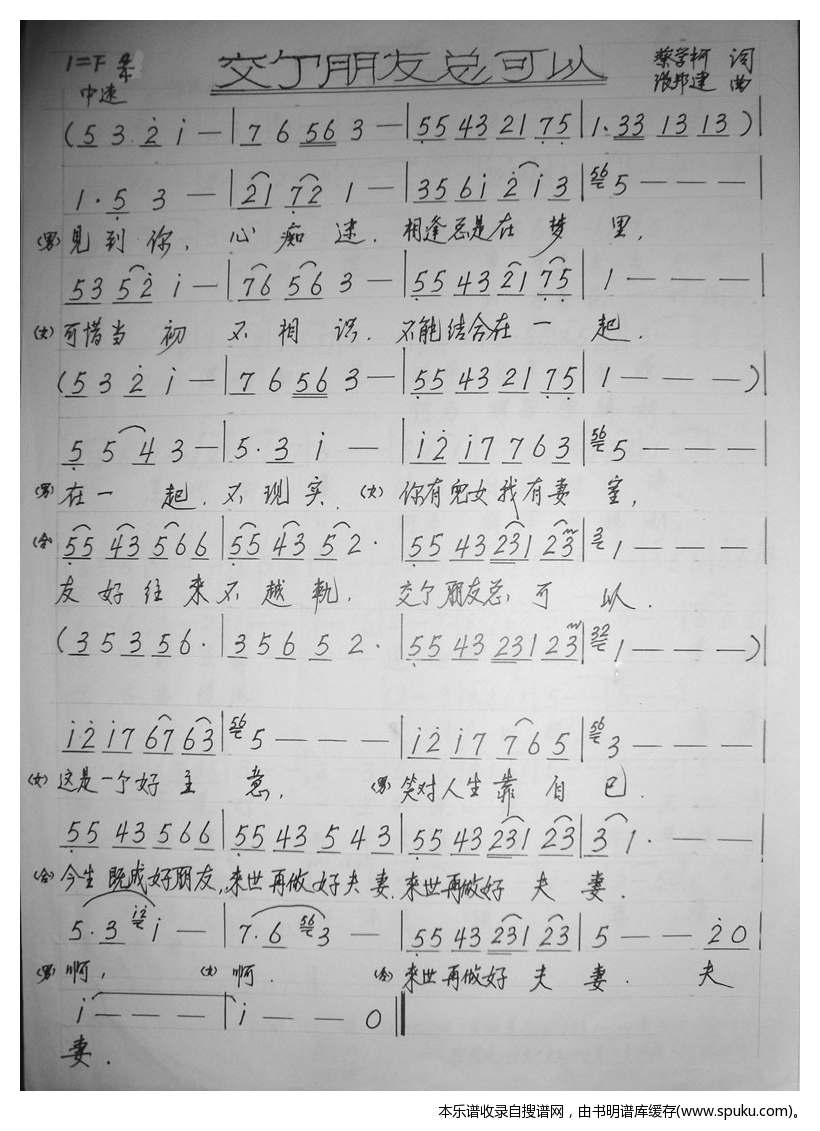 交了朋友总可以
1=F 4/4
蔡学柯 词
中速
浪邦建 曲
(5 3 2 i — | 7 6 56 3 — | 55 43 21 75 | 1. 33 13 13 )|
1 . 5 3 — | 21 72 1 — | 35 6i 2 i 3 | 56 5 — — — |
(男) 见到你, 心痴迷. 相逢总是在梦里,
53 52 i — | 76 56 3 — | 55 43 21 75 | 1 — — — |
(女) 可惜当初不相识. 不能结合在一起.
(5 3 2 i — | 7 6 56 3 — | 55 43 21 75 | 1 — — — )|
5 5 4 3 — | 5 . 3 i — | i2 i7 7 6 3 | 56 5 — — — |
(男) 在一起. 不现实. (女) 你有儿女我有妻室,
(合) 55 43 566 | 55 43 5 2 . | 55 43 231 23 | 2 1 — — — |
友好往来不越轨. 交了朋友总可以.
(35 35 6 . | 35 6 5 2 . | 55 43 231 23 | 32 1 — — — )|
i2 i7 67 63 | 56 5 — — — | i2 i7 7 6 5 | 56 3 — — — |
(女) 这是一个好主意, (男) 笑对人生靠自己.
55 43 566 | 55 43 5 43 | 55 43 231 23 | 3 1 . — — |
(合) 今生既成好朋友, 来世再做好夫妻. 来世再做好夫妻.
5 . 3 i2 i — | 7 . 6 56 3 — | 55 43 231 23 | 5 — — 2 0 |
(男) 啊, (女) 啊. (合) 来世再做好夫妻. 夫
i — — — | i — — 0 ‖
妻.
本乐谱收录自搜谱网，由书明谱库缓存(www.spuku.com)。